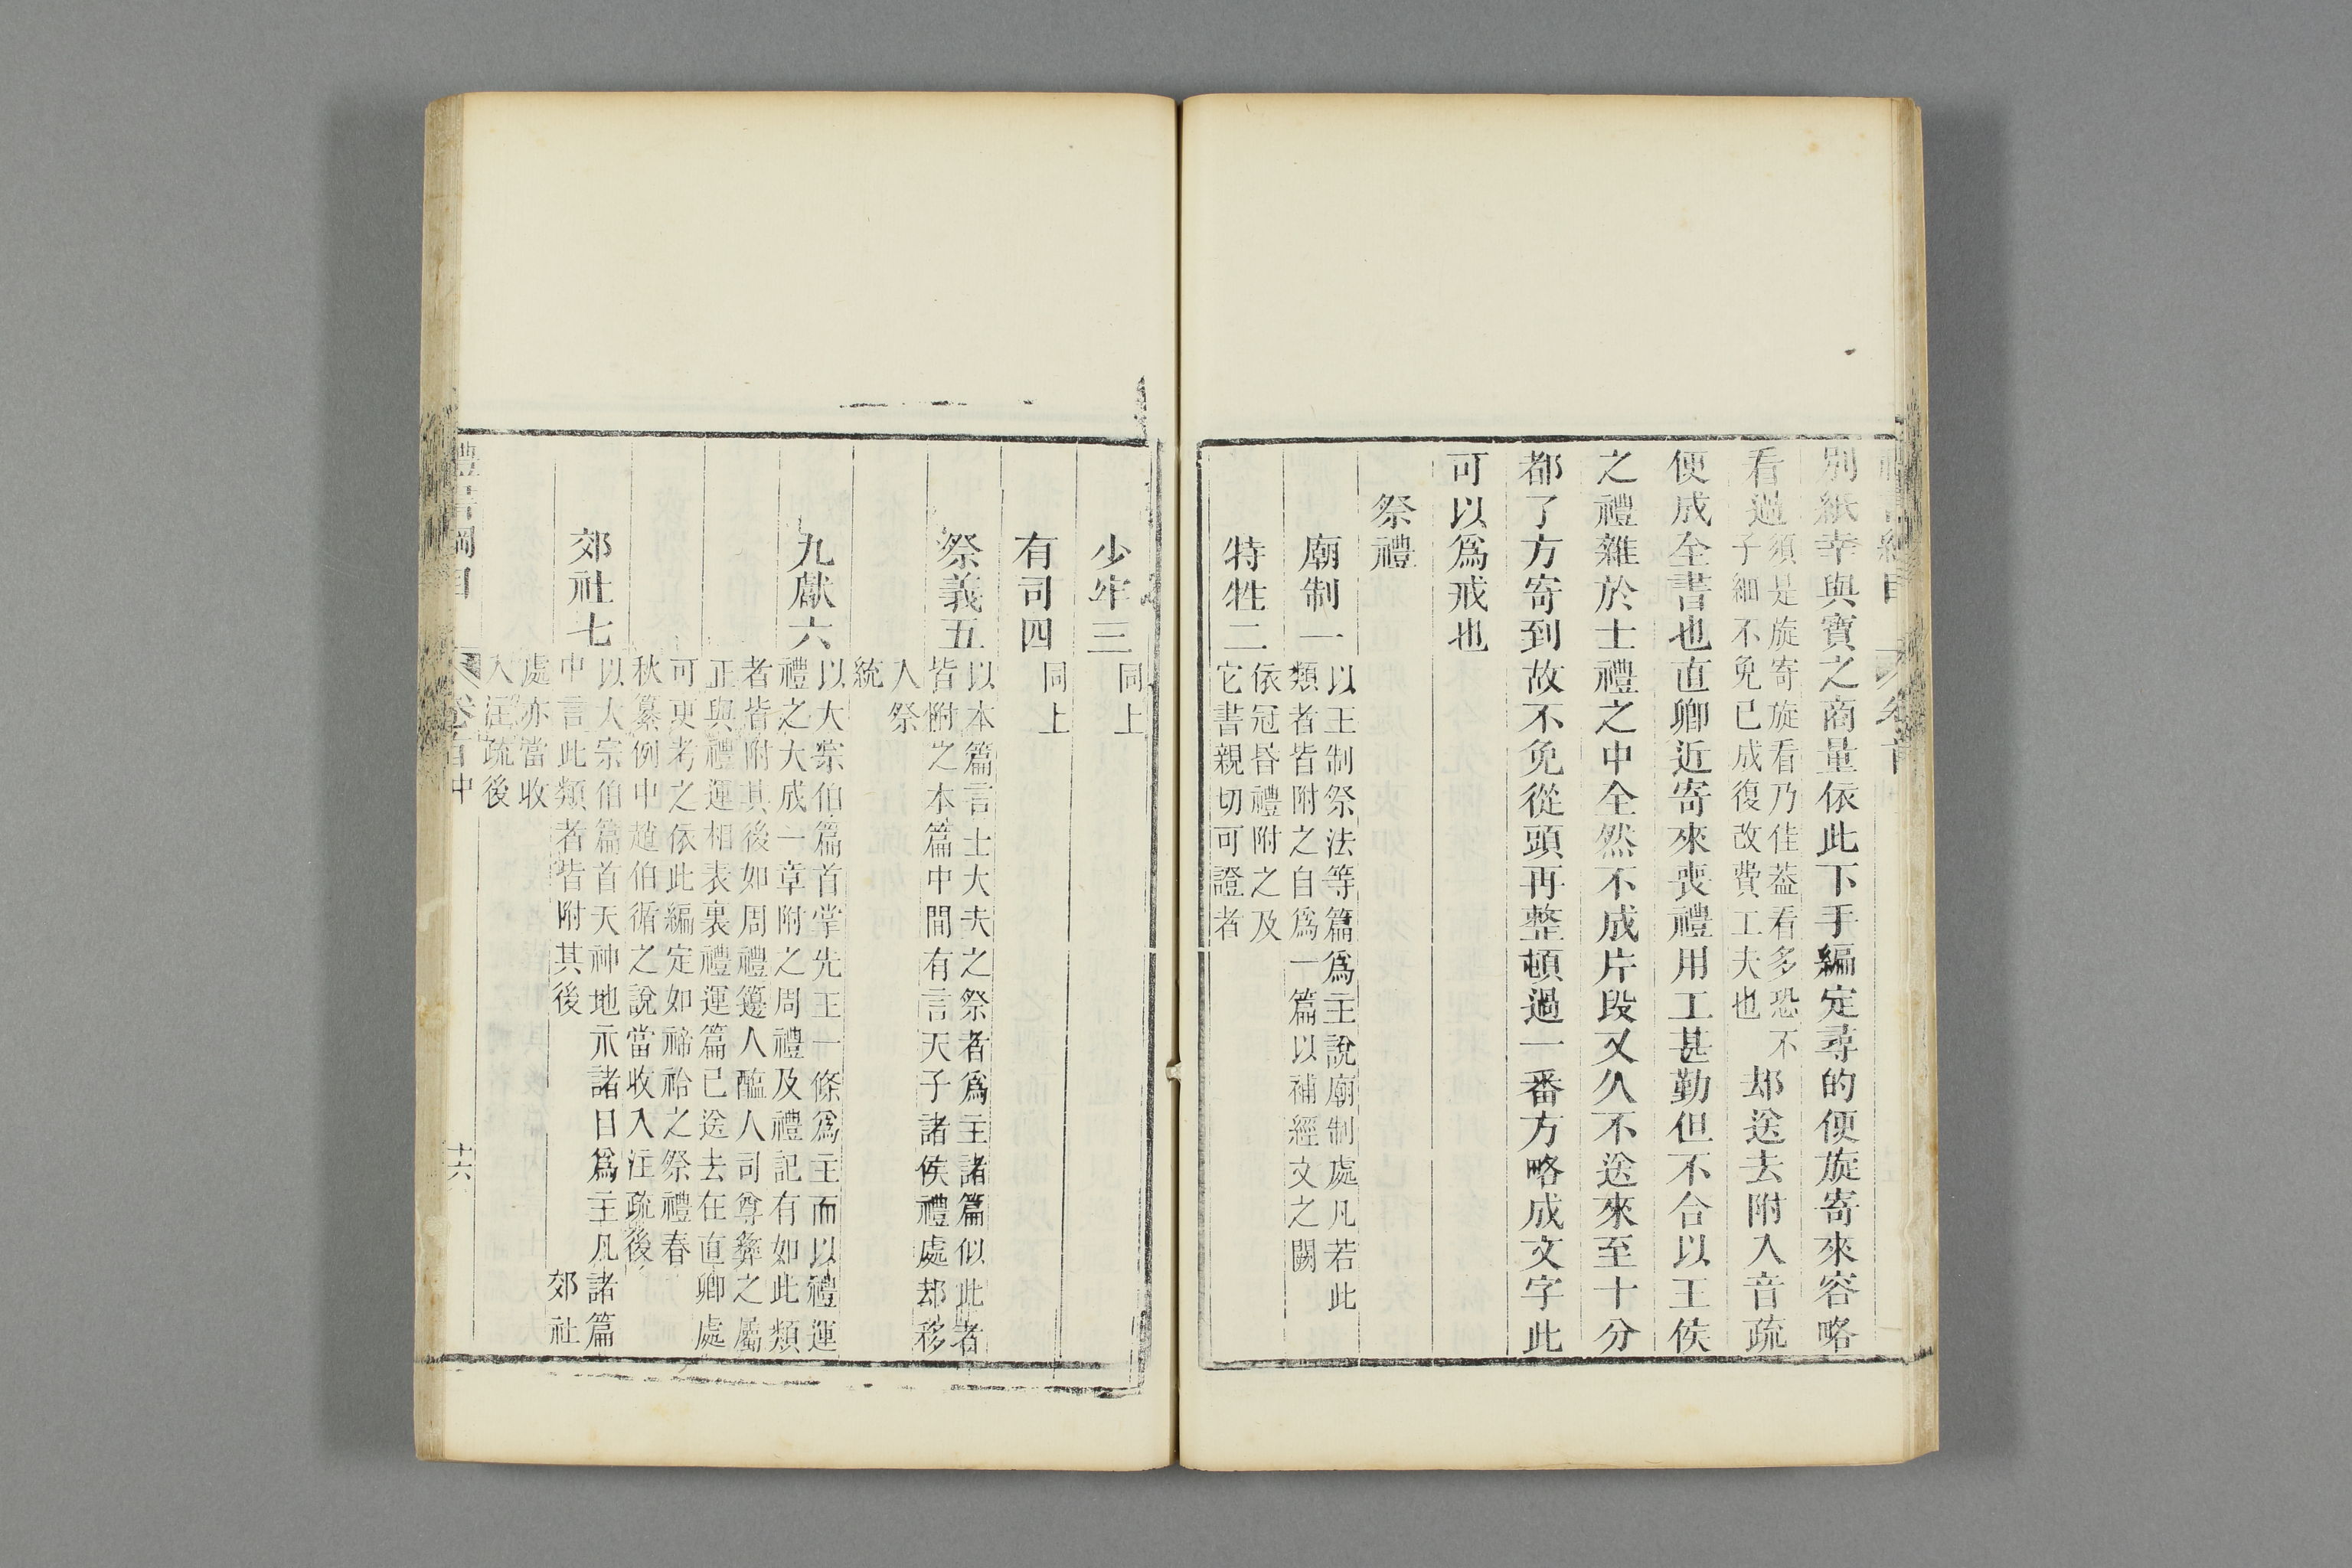 別紙幸與寶之商量依此下手編定尋的便旋寄來容略
看過須是旋寄旋看乃佳葢看多恐不
子細不免已成復改費工夫也却送去附入音疏
便成全書也直卿近寄來喪禮用工甚勤但不合以王侯
之禮雜於士禮之中全然不成片段又久不送來至十分
都了方寄到故不免從頭再整頓過一番方略成文字此
可以爲戒也
祭禮
廟制一以王制祭法等篇爲主說廟制處凡若此
類者皆附之自爲一篇以補經文之闕
特牲二依冠昏禮附之及
它書親切可證者
少牢三同上
有司四同上
祭義五以本篇言士大夫之祭者爲主諸篇似此者
皆附之本篇中間有言天子諸侯禮處却移
入祭
統
九獻六以大宗伯篇首掌先王一條爲主而以禮運
禮之大成一章附之周禮及禮記有如此類
者皆附其後如周禮籩人醢人司尊彝之屬
正與禮運相表裏禮運篇已送去在直卿處
可更考之依此編定如禘祫之祭禮春
秋纂例中趙伯循之說當收入注疏後
郊社七以大宗伯篇首天神地示諸日爲主凡諸篇
中言此類者皆附其後 郊社
處亦當收
入注疏後
禮書綱目 卷首中 十六